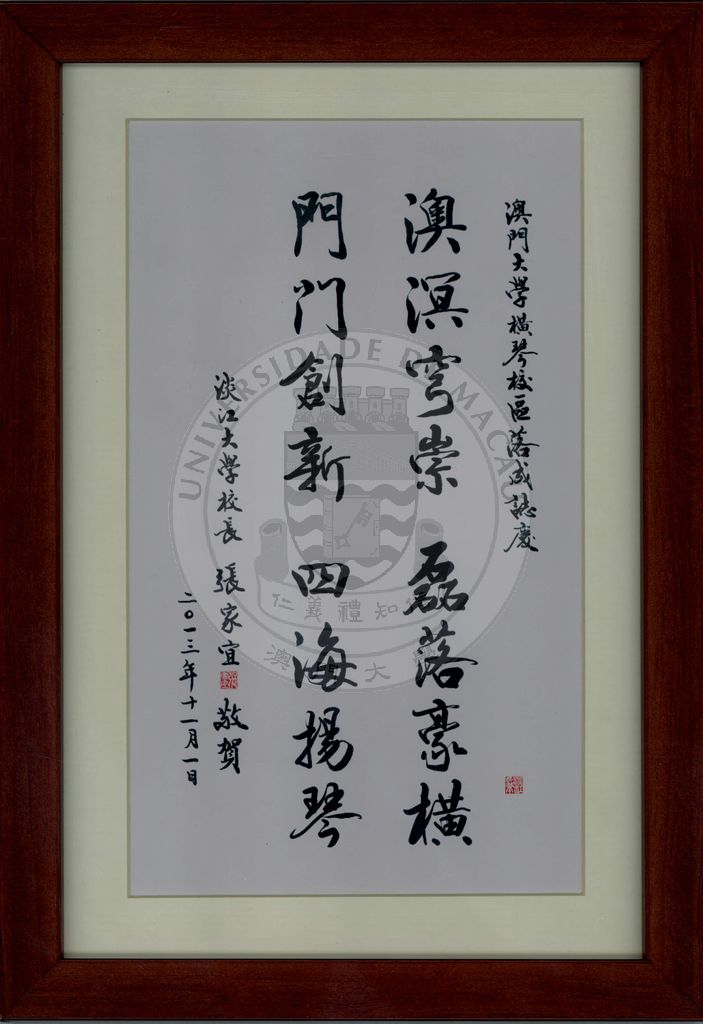 澳門大學橫琴校區落成誌慶
澳溟穹崇 磊落豪橫
門門創新 四海揚琴
淡江大學校長 張家宜 敬賀
二〇一三年十一月一日
UNIVERSIDADE DE MACAU
仁義禮知信
澳門大學